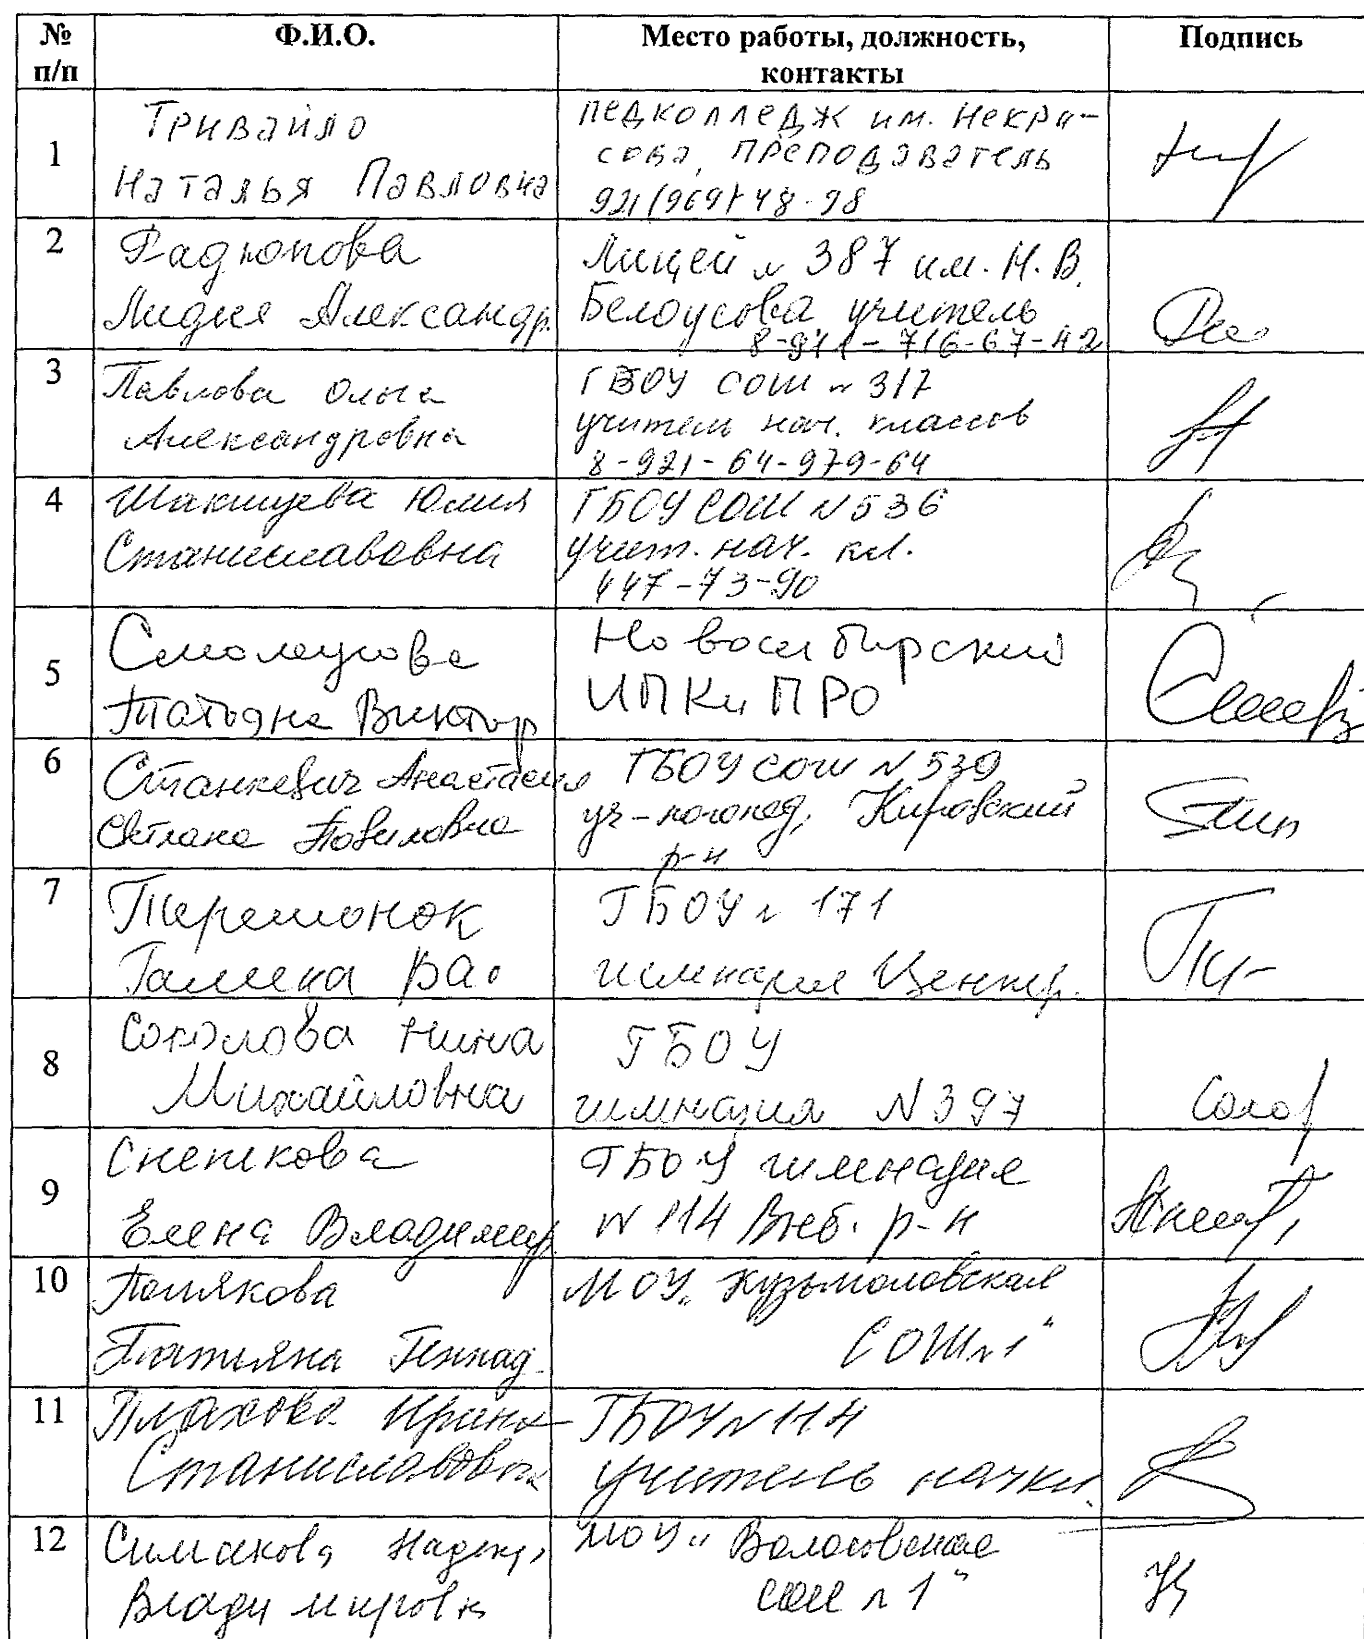 № п/п
Ф.И.О.
Место работы, должность, контакты
Подпись
1
Тривайло
Наталья Павловна
педколледж им. Некра-
сова, преподаватель
921(969)48-98
2
Радюпова
Лидия Александр.
Лицей № 387 им. Н.В.
Белоусова учитель
8-911-716-67-42
3
Павлова Ольга
Александровна
ГБОУ СОШ № 317
учитель нач. классов
8-921-64-979-64
4
Юлия
Станиславовна
ГБОУ СОШ N 536
учит. нач. кл.
447-73-90
5
Татьяна Виктор
Новосибирский
ИПКиПРО
6
Станкевич Анастасия
Павловна
ГБОУ СОШ N 539
уч-логопед, Кировский
р-н
7
Терешонок
Галина Вас
ГБОУ № 171
гимназия Центр.
8
Соколова Нина
Михайловна
ГБОУ
гимназия N 397
9
Снеткова
Елена Владимир
ГБОУ гимназия
N 114 Выб. р-н
10
Полякова
Татьяна Геннад.
МОУ „Кузьмоловская
СОШ №1"
11
Плахова Ирина
Станиславовна
ГБОУ № 114
учитель нач кл.
12
Симакова Надежд
Владимировн
МОУ „Волосовская
сош № 1"